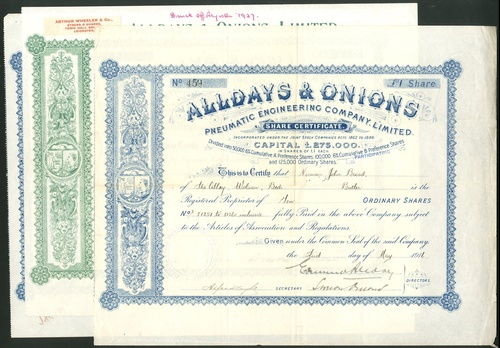 Struck off Register 1927.
ARTHUR WHEELER & Co.,
STOCKS & SHARES,
LEICESTER.
ALLDAYS & ONIONS, LIMITED
No 459
£1 Share
ALLDAYS & ONIONS
PNEUMATIC ENGINEERING COMPANY, LIMITED.
SHARE CERTIFICATE
INCORPORATED UNDER THE JOINT STOCK COMPANIES ACTS 1862 TO 1886.
CAPITAL £275,000.
IN SHARES OF £1 EACH
Divided into 50,000 6% Cumulative A Preference Shares, 100,000 6% Cumulative B Preference Shares
and 125,000 Ordinary Shares.
PARTICIPATING
This is to Certify that John
of is the
Registered Proprietor of ORDINARY SHARES
Nos to inclusive fully Paid in the above Company, subject
to the Articles of Association and Regulations.
Given under the Common Seal of the said Company,
the day of May 1911
DIRECTORS
SECRETARY